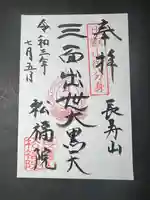 奉拝
長寿山
三面出世大黒天
令和三年
七月五日
松福院